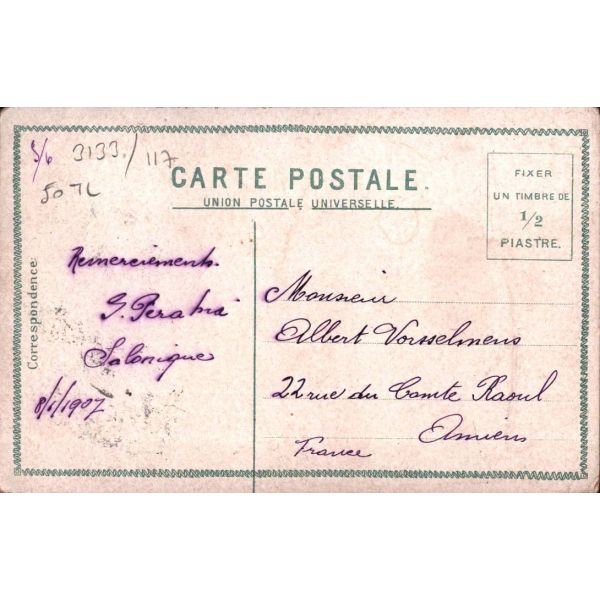 3/6
3133./117
50 TL
CARTE POSTALE.
UNION POSTALE UNIVERSELLE.
FIXER
UN TIMBRE DE
1/2
PIASTRE.
Correspondence
Remerciements.
S. Perahia
Salonique
8/6/1907
Monsieur
Albert Vorsselmens
22 rue du Comte Raoul
Amiens
France